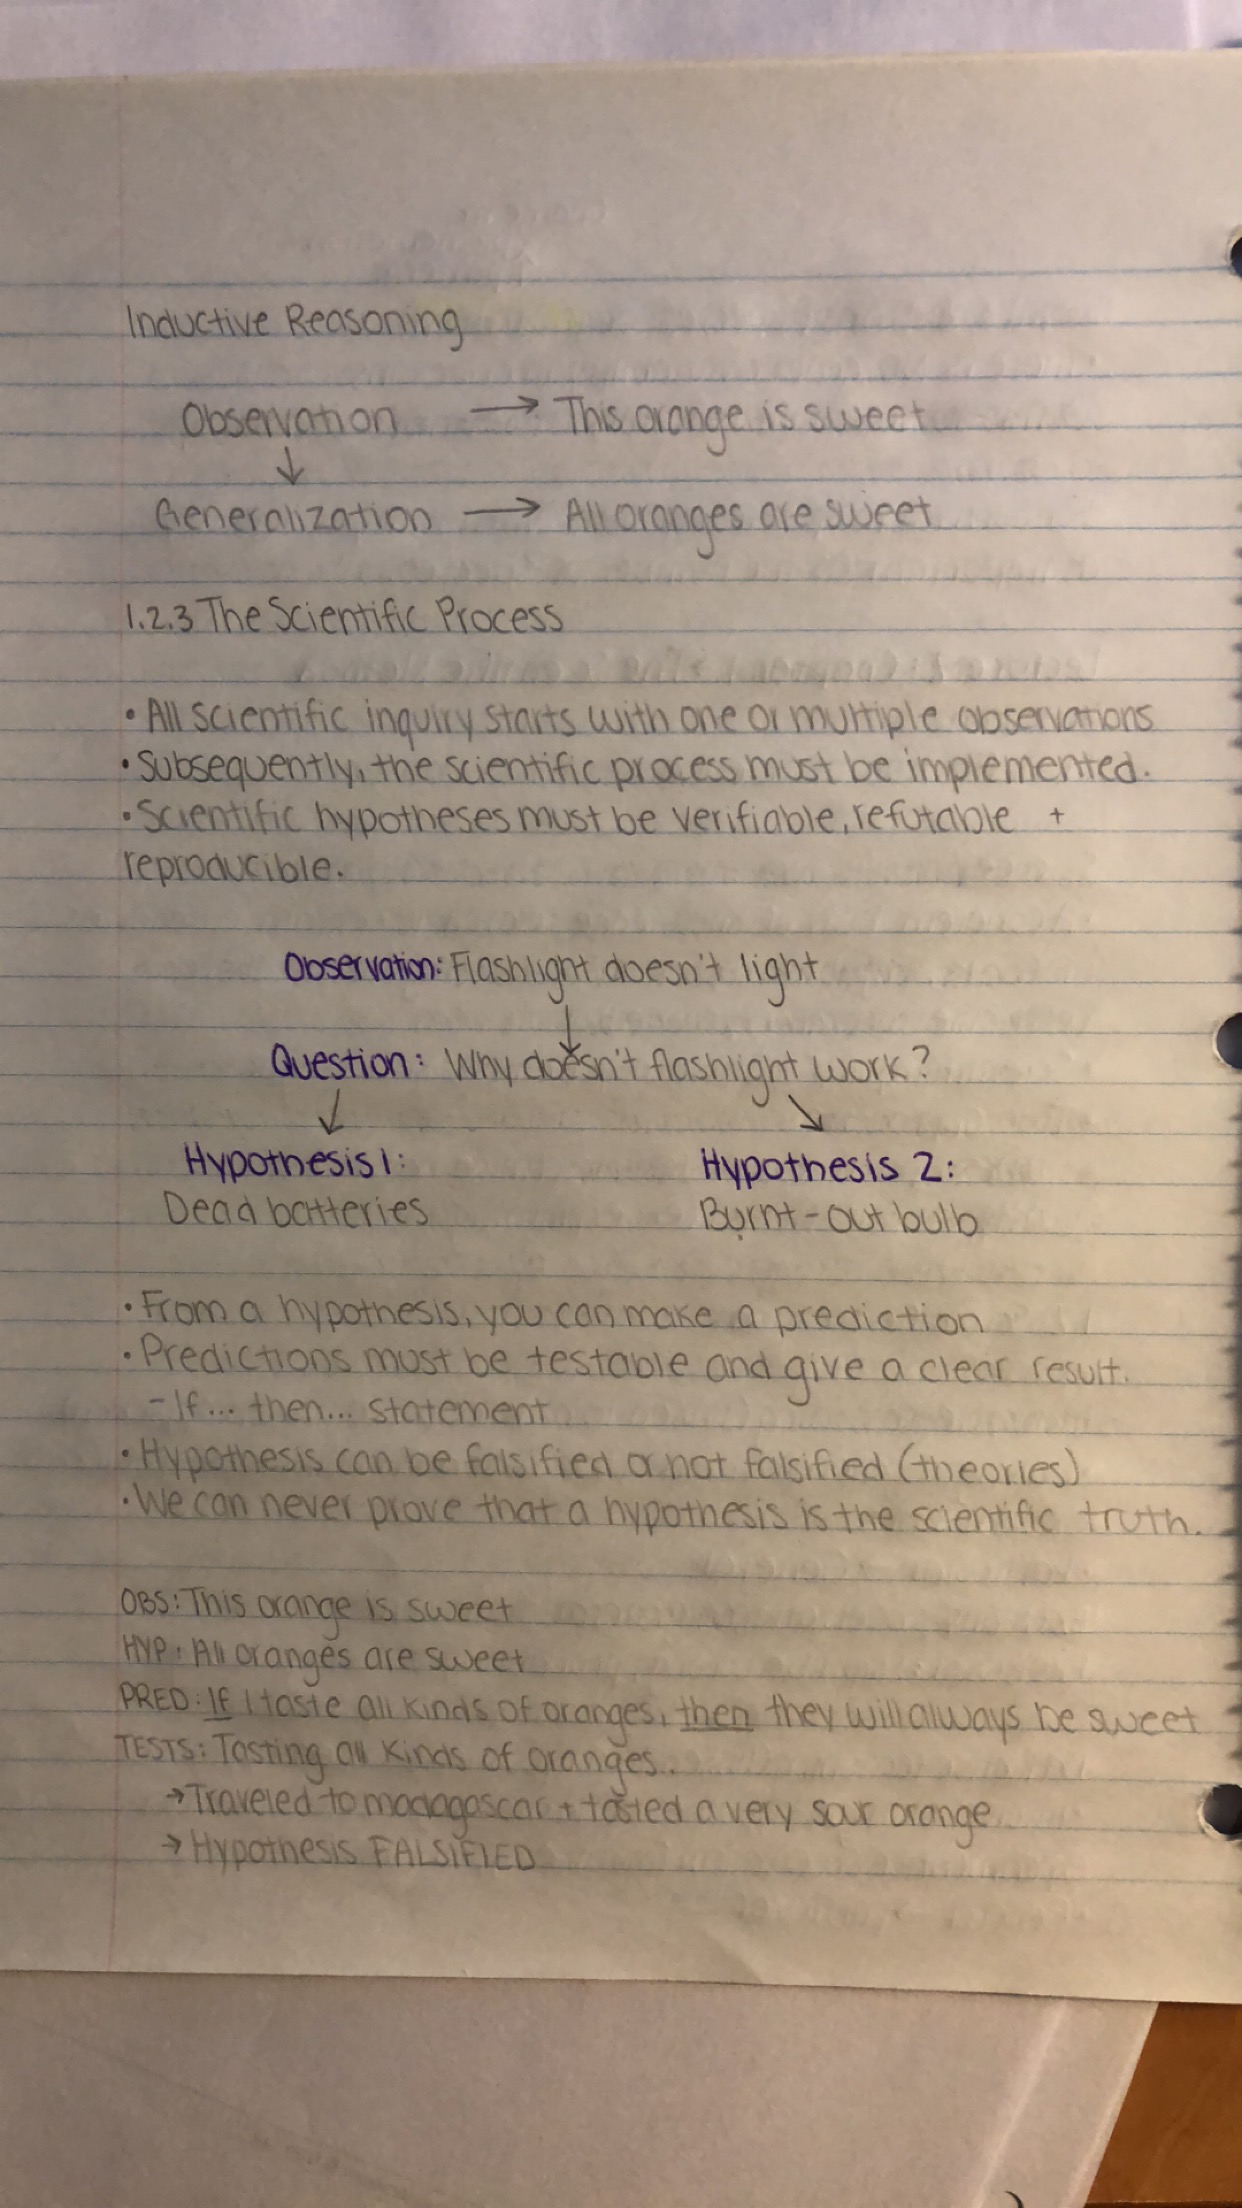 Inductive Reasoning
Observation → This orange is sweet
↓
Generalization → All oranges are sweet
1.2.3 The Scientific Process
• All scientific inquiry starts with one or multiple observations
• Subsequently, the scientific process must be implemented.
• Scientific hypotheses must be verifiable, refutable +
reproducible.
Observation: Flashlight doesn't light
↓
Question: Why doesn't flashlight work?
↙ ↘
Hypothesis 1: Hypothesis 2:
Dead batteries Burnt-out bulb
• From a hypothesis, you can make a prediction
• Predictions must be testable and give a clear result.
- If... then... statement
• Hypothesis can be falsified or not falsified (theories)
• We can never prove that a hypothesis is the scientific truth.
OBS: This orange is sweet
HYP: All oranges are sweet
PRED: If I taste all kinds of oranges, then they will always be sweet
TESTS: Tasting all kinds of oranges.
→ Traveled to madagascar + tasted a very sour orange
→ Hypothesis FALSIFIED